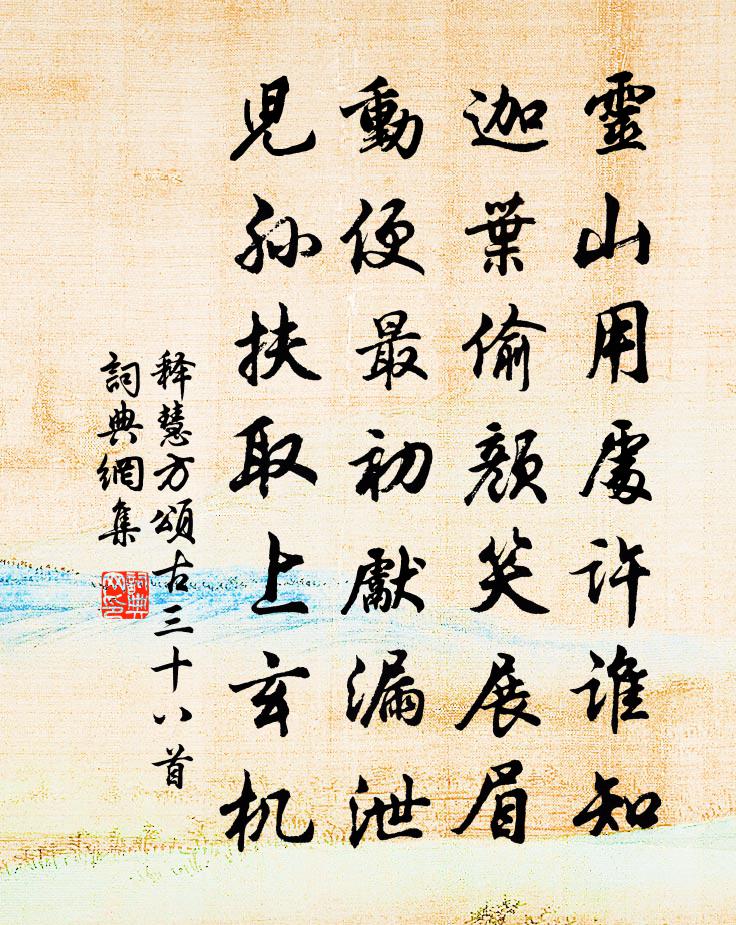 靈山用處許誰知
迦葉偷顏笑展眉
動便最初獻漏泄
児孫扶取上玄机
释慧方頌古三十八首
詞典網集
詞典網印